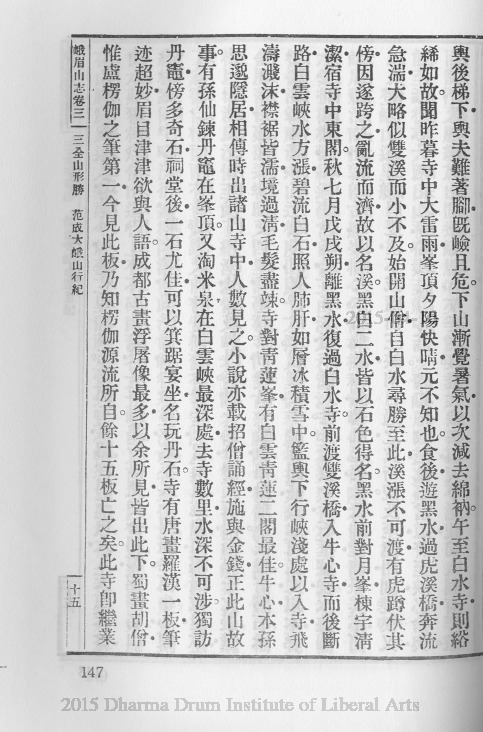 輿後梯下輿夫難著腳既嶮且危。下山漸覺暑氣以次減去綿衲。午至白水寺則絺
綌如故。聞昨暮寺中大雷雨峯頂夕陽快晴元不知也。食後遊黑水過虎溪橋奔流
急湍大略似雙溪而小不及。始開山僧自白水尋勝至此溪漲不可渡有虎蹲伏其
傍因遂跨之亂流而濟故以名溪。黑白二水皆以石色得名。黑水前對月峯棟宇清
潔宿寺中東閣。秋七月戊戌朔離黑水復過白水寺。前渡雙溪橋入牛心寺而後斷
路白雲峽水方漲碧流白石照人肺肝如層冰積雪中。籃輿下行峽淺處以入寺飛
濤濺沫襟裾皆濡境過清毛髮盡竦。寺對青蓮峯有白雲青蓮二閣最佳。牛心本孫
思邈隱居相傳時出諸山寺中人數見之。小說亦載招僧誦經施與金錢正此山故
事。有孫仙鍊丹竈在峯頂。又淘米泉在白雲峽最深處去寺數里水深不可涉。獨訪
丹竈傍多奇石祠堂後一石尤佳可以箕踞宴坐名玩丹石。寺有唐畫羅漢一板筆
迹超妙眉目津津欲與人語。成都古畫浮屠像最多以余所見皆出此下。蜀畫胡僧
惟盧楞伽之筆第一今見此板乃知楞伽源流所自。餘十五板亡之矣。此寺卽繼業
峨眉山志卷三 三全山形勝 范成大峨山行紀
十五
147
2015 Dharma Drum Institute of Liberal Arts